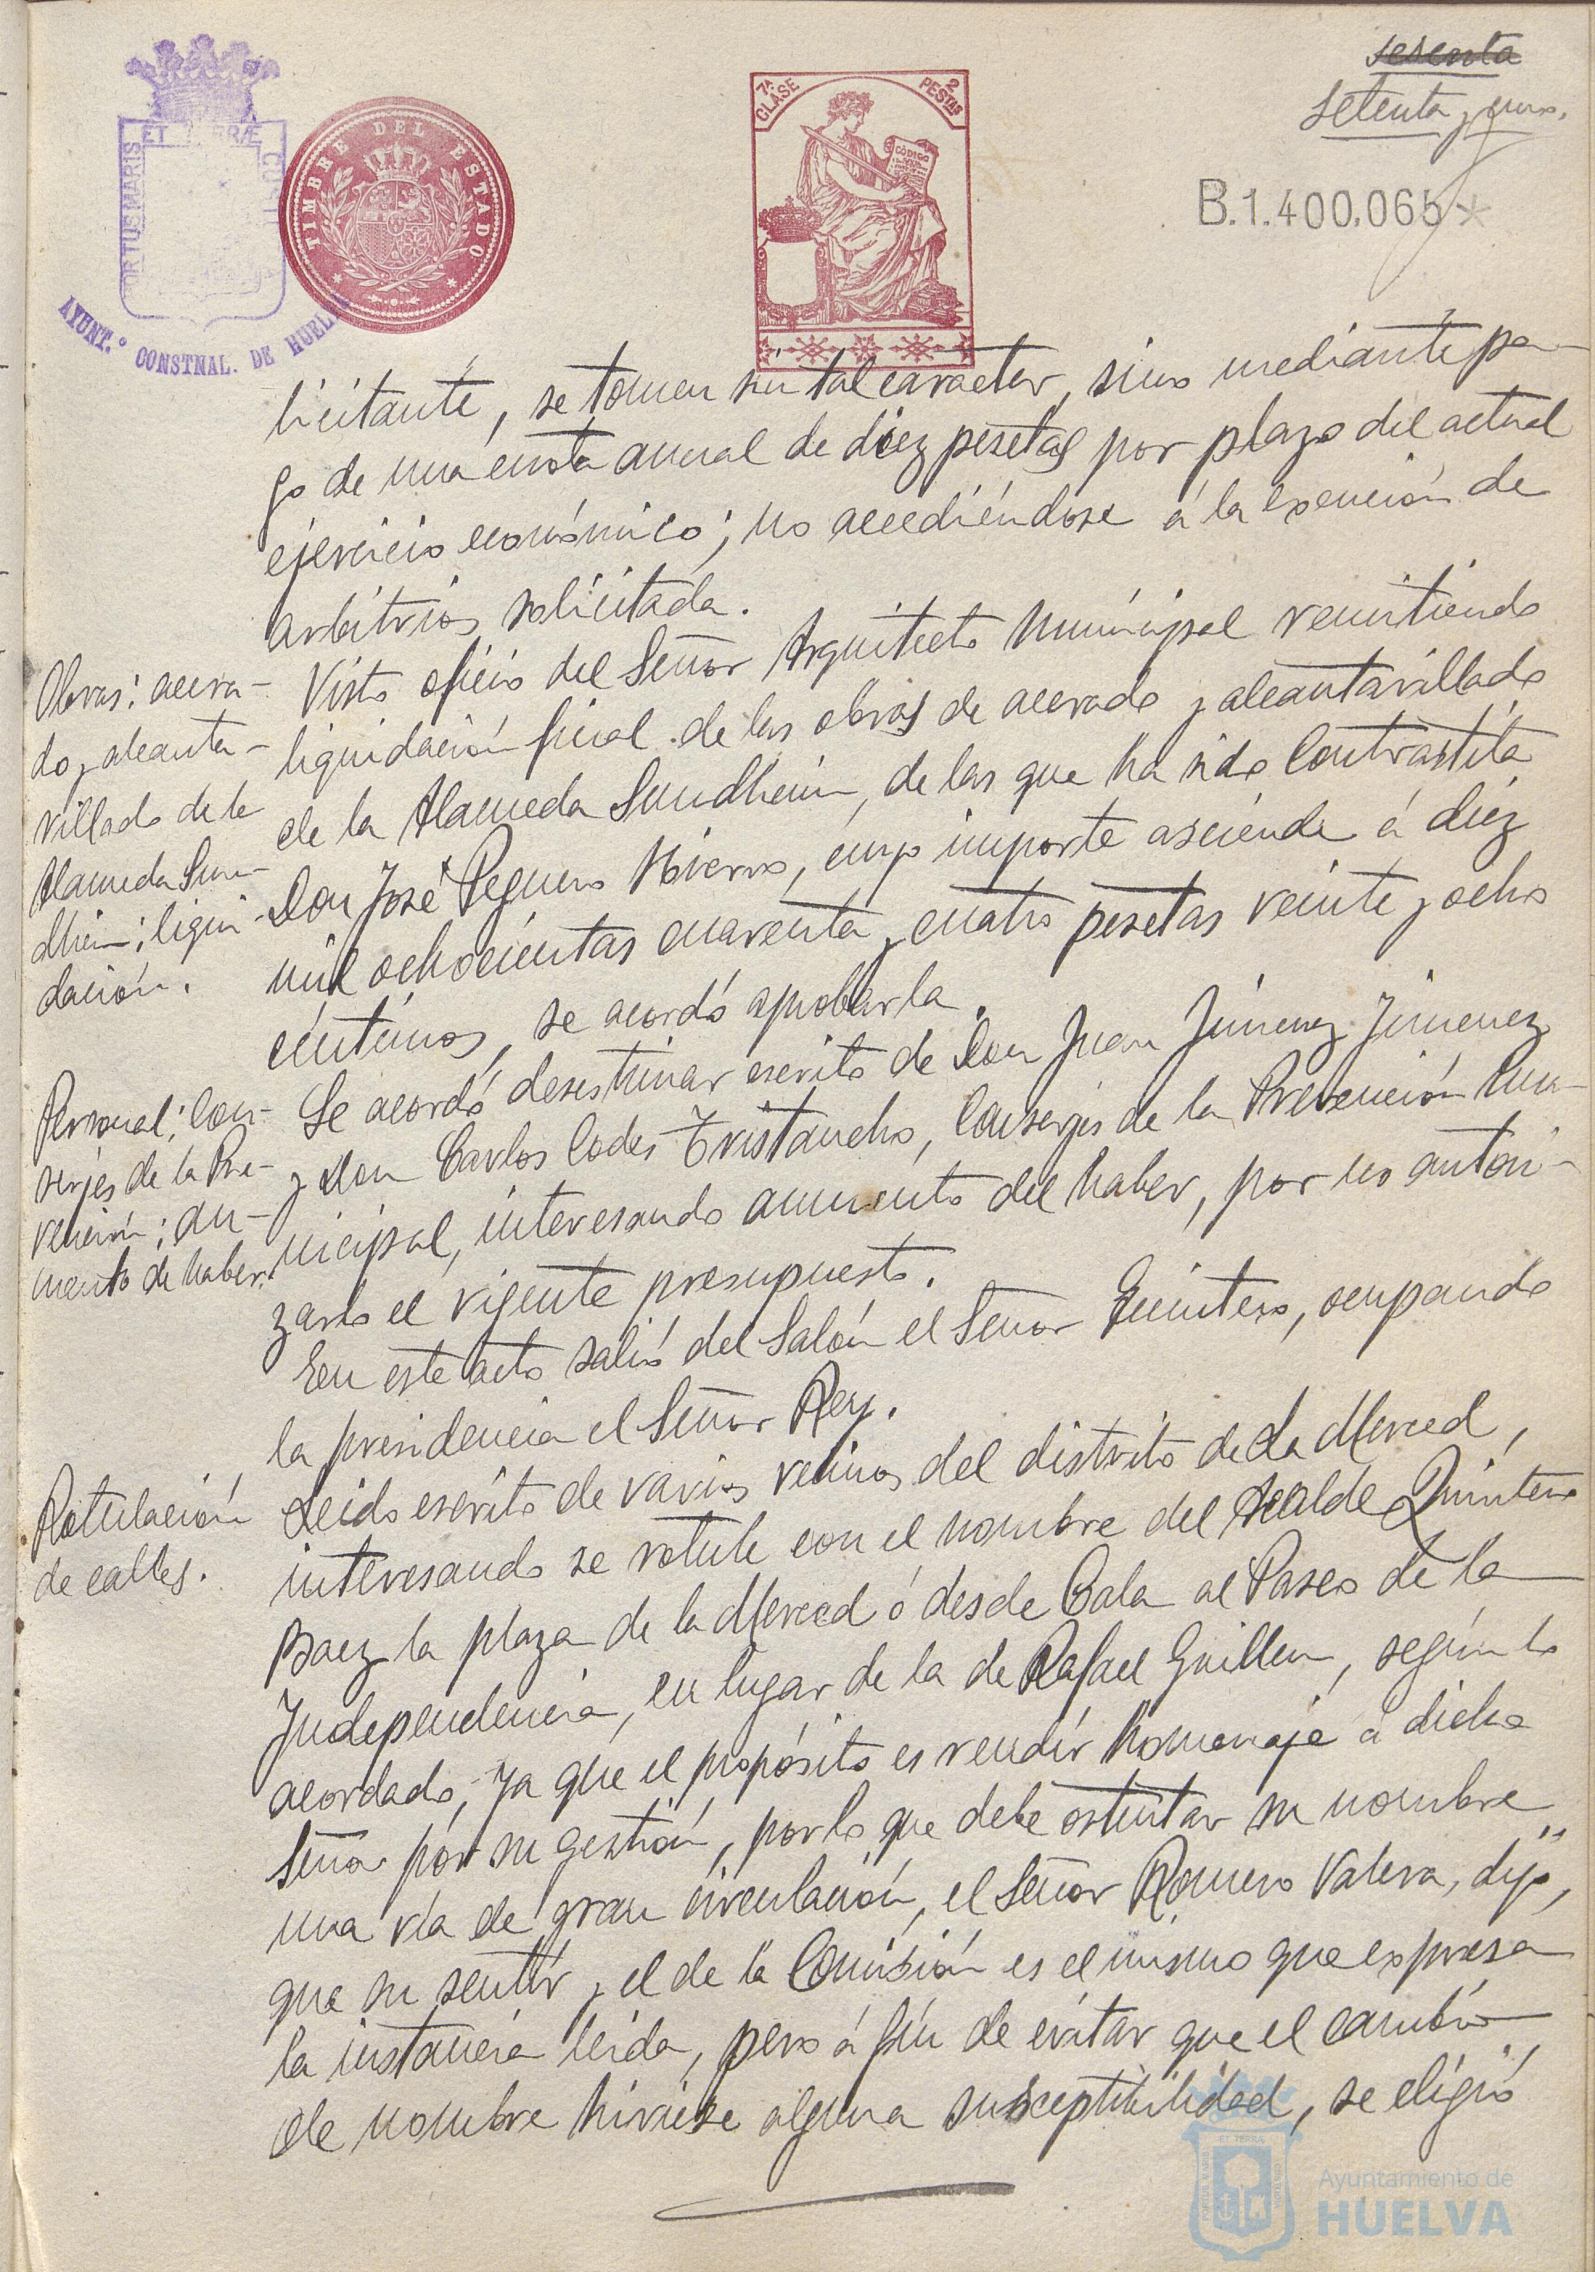 sesenta
setenta y uno.
B.1.400.065*
ET TERRÆ
PORTUS MARIS
AYUNT.º CONSTNAL. DE HUELVA
TIMBRE DEL ESTADO
7ª CLASE
2 PESTAS
CÓDIGO
licitante, se tomen sin tal caracter, sino mediante pa-
go de una cuota anual de diez pesetas por plazo del actual
ejercicio económico; no accediéndose á la exención de
arbitrios solicitada.
Obras: acera-
do y alcanta-
rillado de la
Alameda Sun-
dhein; liqui
dación.
Visto oficio del Señor Arquitecto Municipal remitiendo
liquidación final de las obras de acerado y alcantarillado
de la Alameda Sundhein, de las que ha sido Contratista
Don José Peguero Hierro, cuyo importe asciende á diez
mil ochocientas cuarenta y cuatro pesetas veinte y ocho
céntimos, se acordó aprobarla.
Personal; Con-
serjes de la Pre-
vención; au-
mento de haber.
Se acordó desestimar escrito de Don Juan Jimenez Jimenez
y Don Carlos Codes Tristancho, Conserjes de la Prevención Mu-
nicipal, interesando aumento del haber, por no autori-
zarlo el vigente presupuesto.
En este acto salió del Salón el Señor Quintero, ocupando
la presidencia el Señor Rey.
Rotulación
de calles.
Leido escrito de varios vecinos del distrito de La Merced,
interesando se rotule con el nombre del Alcalde Quintero
Baez la plaza de la Merced ó desde Cala al Paseo de la
Independencia, en lugar de la de Rafael Guillen, según lo
acordado, ya que el propósito es rendir homenaje á dicho
Señor por su gestión, por lo que debe ostentar su nombre
una vía de gran circulación, el Señor Romero Valera, dijo,
que su sentir y el de la Comisión es el mismo que expresa
la instancia leida, pero á fin de evitar que el cambio
de nombre hiriese alguna susceptibilidad, se eligió
Ayuntamiento de
HUELVA